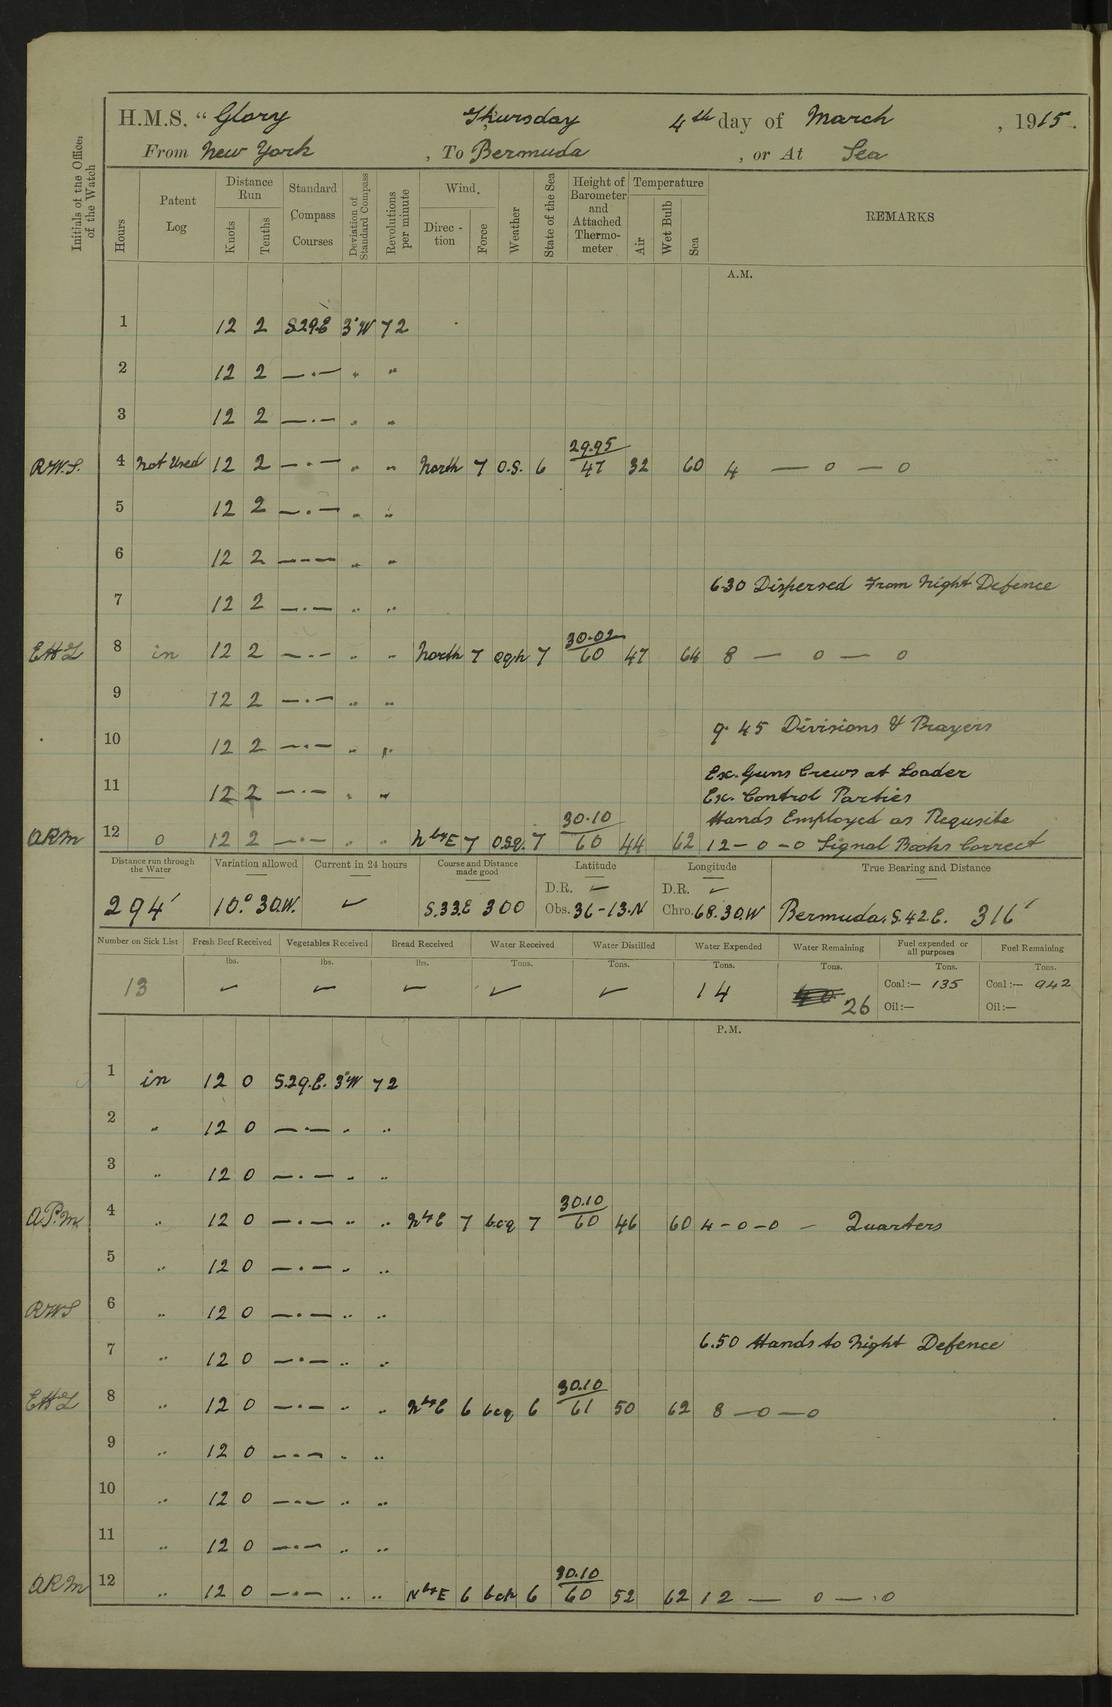 H.M.S. “ Glory Thursday 4th day of March , 1915.
From New York , To Bermuda , or At Sea
Initials of the Officer of the Watch
Hours
Patent Log
Distance Run
Knots
Tenths
Standard Compass Courses
Deviation of Standard Compass
Revolutions per minute
Wind.
Direc-tion
Force
Weather
State of the Sea
Height of Barometer and Attached Thermo-meter
Temperature
Air
Wet Bulb
Sea
REMARKS
A.M.
1 12 2 S.29.E 3°W 72
2 12 2 — · — „ „
3 12 2 — · — „ „
29.95
R.W.S. 4 Not Used 12 2 — · — „ „ North 7 O.S. 6 47 32 60 4 — 0 — 0
5 12 2 — · — „ „
6 12 2 — - — „ „
6.30 Dispersed From Night Defence
7 12 2 — · — „ „
30.02
8 in 12 2 — · — „ „ North 7 oqh 7 60 47 64 8 — 0 — 0
9 12 2 — · — „ „
9.45 Divisions & Prayers
10 12 2 — · — „ „
Ex. Guns Crews at Loader
11 12 2 — · — „ „ Ex. Control Parties
30.10 Hands Employed as Requsite
ARM 12 0 12 2 — · — „ „ N by E 7 7 60 44 62 12 - 0 - 0 Signal Books Correct
Distance run through the Water
Variation allowed
Current in 24 hours
Course and Distance made good
Latitude
Longitude
True Bearing and Distance
D.R. ✓ D.R. ✓
294' 10.° 30.W. ✓ S.33.E 300 Obs. 36-13.N Chro. 68.30.W Bermuda. S.42.E. 316'
Number on Sick List
Fresh Beef Received
Vegetables Received
Bread Received
Water Received
Water Distilled
Water Expended
Water Remaining
Fuel expended or all purposes
Fuel Remaining
lbs. lbs. lbs. Tons. Tons. Tons. Tons. Tons. Tons.
13 ✓ ✓ ✓ ✓ ✓ 14 26 Coal:— 135 Coal:— 942
Oil:— Oil:—
P.M.
1 in 12 0 S.29.E. 3°W 72
2 „ 12 0 — · — „ „
3 „ 12 0 — · — „ „
30.10
4 „ 12 0 — · — „ „ N by E 7 bcq 7 60 46 60 4 - 0 - 0 — Quarters
5 „ 12 0 — · — „ „
RWS 6 „ 12 0 — · — „ „
6.50 Hands to Night Defence
7 „ 12 0 — · — „ „
30.10
8 „ 12 0 — · — „ „ N by E 6 bcq 6 61 50 62 8 — 0 — 0
9 „ 12 0 — · — „ „
10 „ 12 0 — · — „ „
11 „ 12 0 — · — „ „
30.10
ARM 12 „ 12 0 — · — „ „ N by E 6 6 60 52 62 12 — 0 — 0